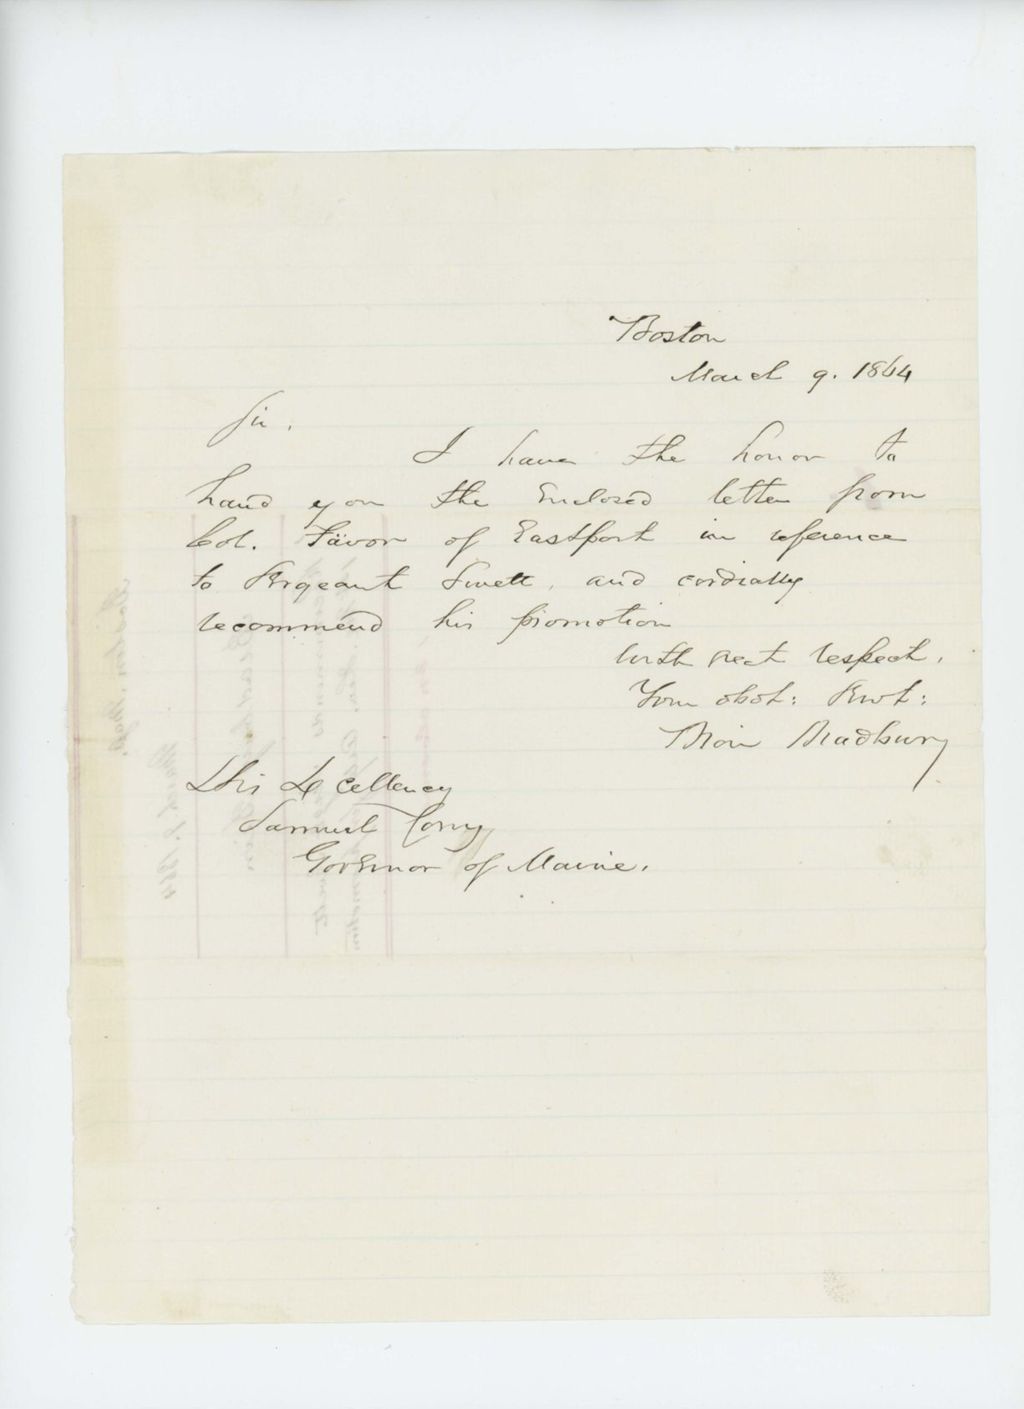 Boston
March 9. 1864
Sir,
I have the honor to
hand you the Enclosed letter from
Col. Favor of Eastport in reference
to Sergeant Swett, and cordially
recommend his promotion
With great respect,
Your obdt: Servt:
Bion Bradbury
His Excellency
Samuel Cony
Governor of Maine.
March 9. 1864